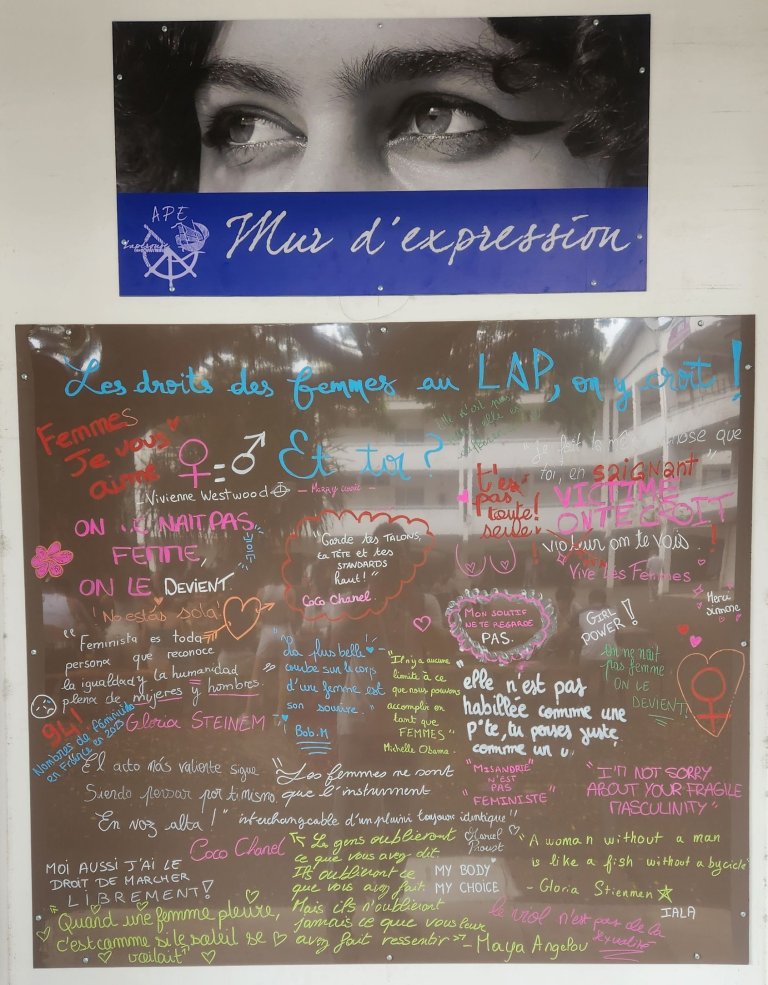 APE
Lapérouse
Mur d'expression
Les droits des femmes au LAP, on y croit !
Et toi ?
Femmes
Je vous
aime
♀ = ♂
Vivienne Westwood
"Je fait la même chose que
toi, en saignant"
t'es
pas
toute
seule !
VICTIME
ON TE CROIT
violeur on te vois. !
Vive les Femmes
Merci
Simone
ON NE NAIT PAS
FEMME,
ON LE DEVIENT.
"Garde tes TALONS,
ta TÊTE et tes
STANDARDS
haut !"
Coco Chanel
MON SOUTIF
NE TE REGARDE
PAS.
GIRL
POWER !
No estás sola !
"Feminista es toda
persona que reconoce
la igualdad y la humanidad
plena de mujeres y hombres.
Gloria STEINEM
94 !
Nombres de féminicide
en France en 2023
"La plus belle
courbe sur le corps
d'une femme est
son sourire."
Bob.M
"Il n'y a aucune
limite à ce
que nous pouvons
accomplir en
tant que
FEMMES"
Michelle Obama.
"elle n'est pas
habillée comme une
p*te, tu penses juste
comme un v.
On ne nait
pas femme.
ON LE
DEVIENT!
El acto más valiente sigue
Siendo pensar por ti mismo.
En voz alta !"
Coco Chanel
"Les femmes ne sont
que l'instrument
interchangeable d'un plaisir toujours identique"
Marcel
Proust
"MISANDRIE"
N'EST
PAS
"FEMINISTE"
"I'M NOT SORRY
ABOUT YOUR FRAGILE
MASCULINITY"
"A woman without a man
is like a fish without a bycicle"
- Gloria Stienmen
MOI AUSSI J'AI LE
DROIT DE MARCHER
LIBREMENT!
"Le gens oublieront
ce que vous avez dit.
Ils oublieront ce
que vous avez fait.
Mais ils n'oublieront
jamais ce que vous leur
avez fait ressentir"
- Maya Angelou
MY BODY
MY CHOICE
"Quand une femme pleure,
c'est comme si le soleil se
voilait"
le viol n'est pas de la
sexualité
IALA